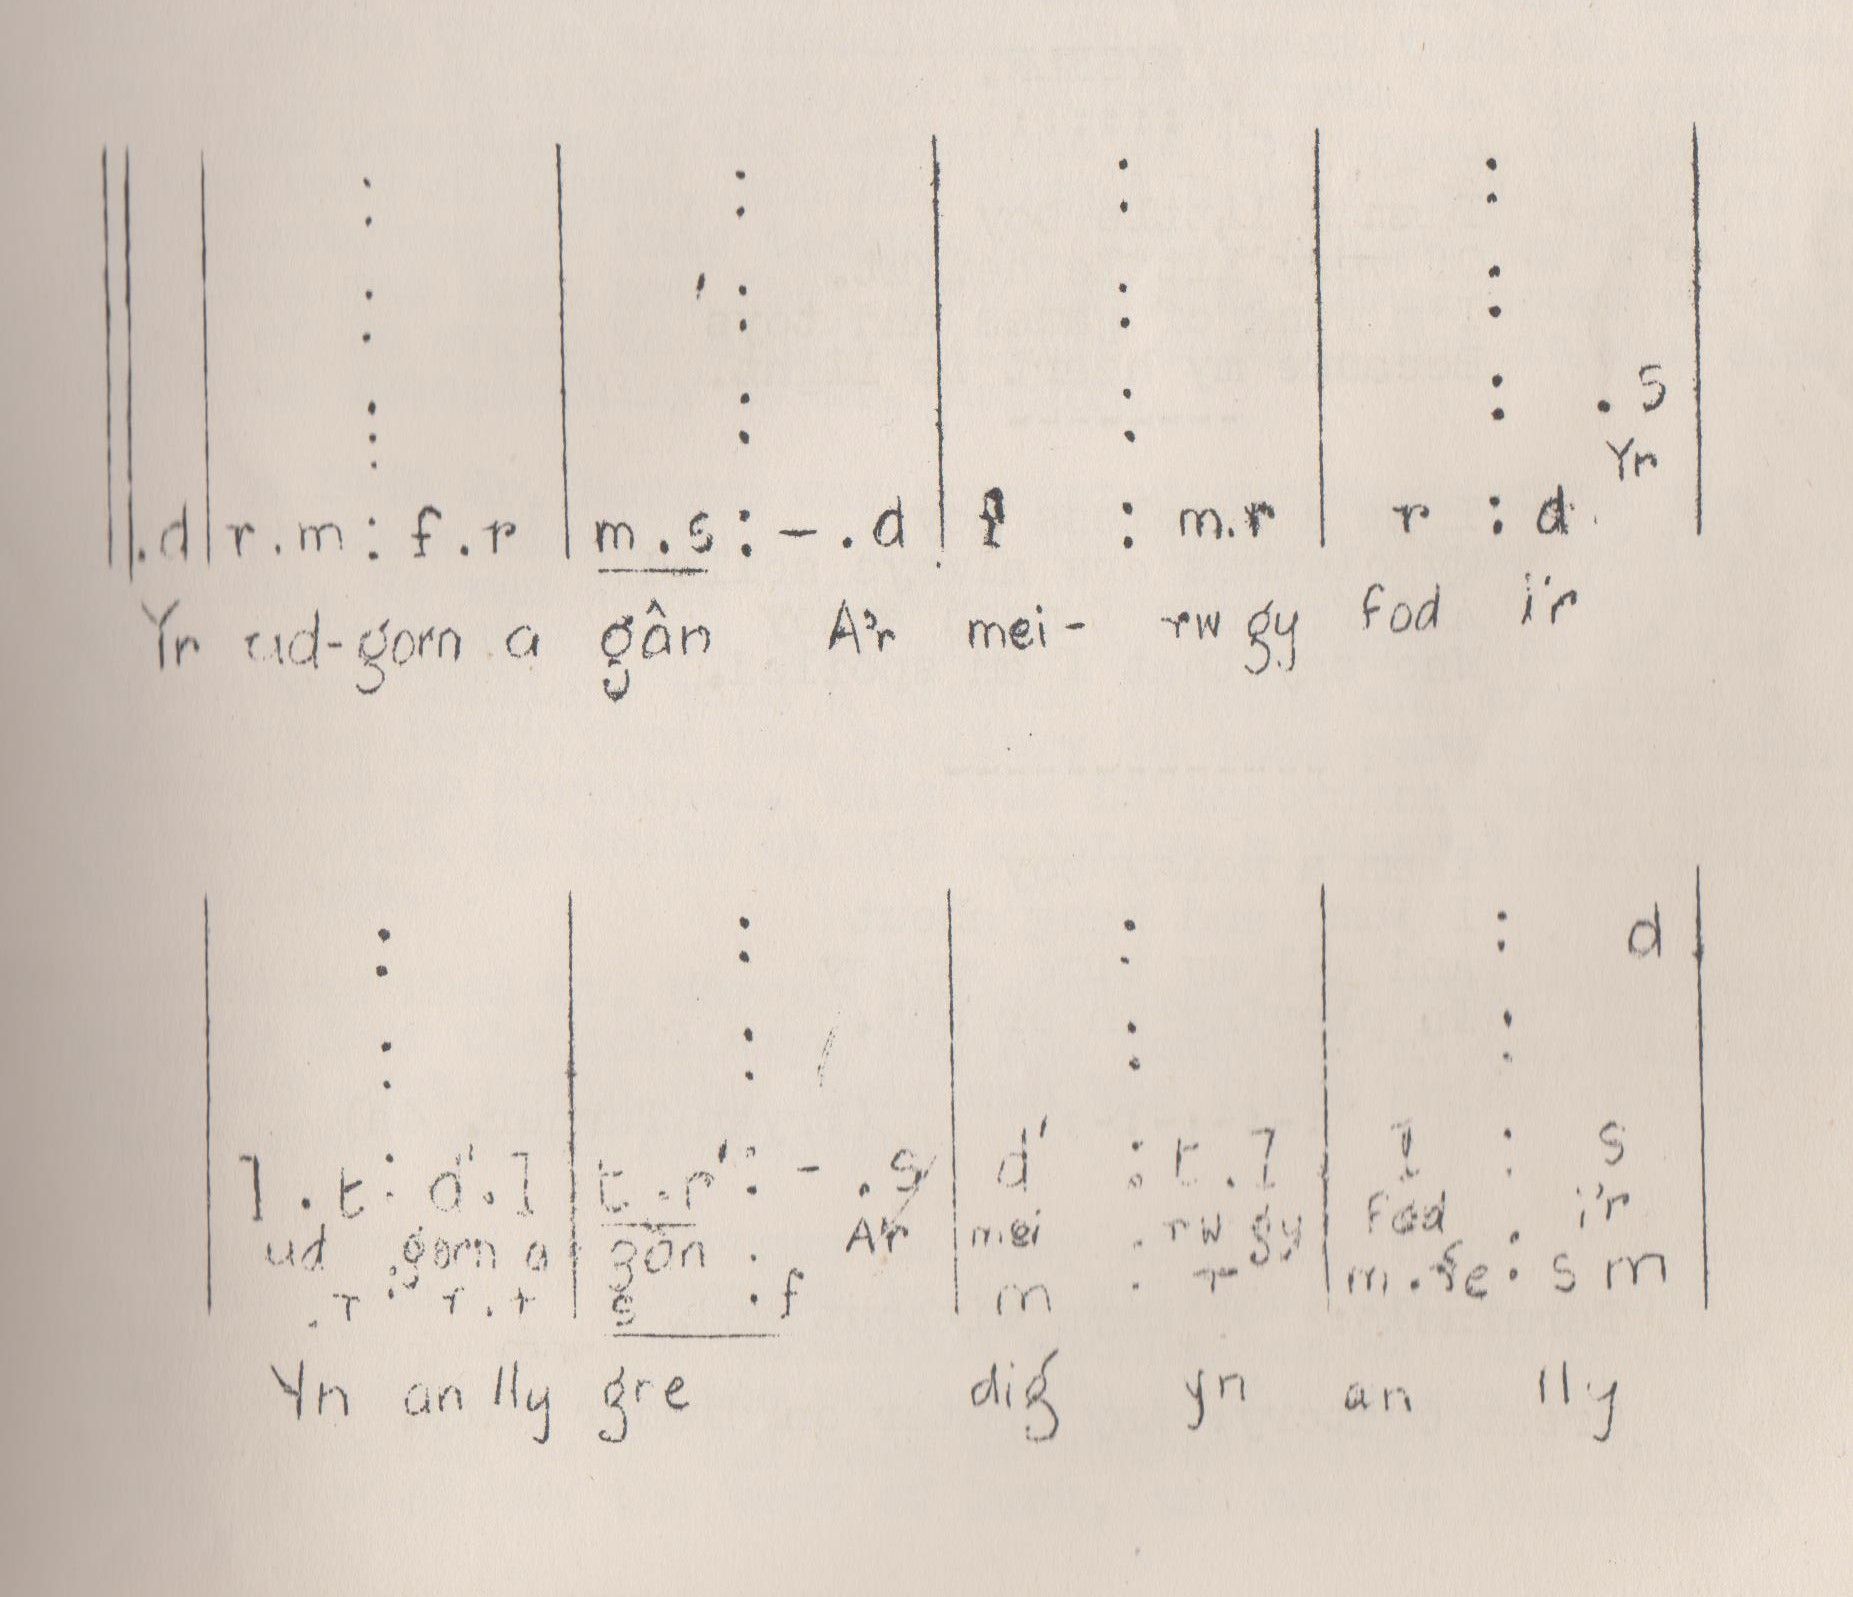 . s
Yr
.d | r.m : f.r | m.s : - .d | f : m.r | r : d
Yr ud-gorn a gân A'r mei- rw gy fod i'r
d
l.t : d'.l | t.r' : - .s | d' : t.l | l : s
ud gorn a gân A'r mei rw gy fod i'r
.r : r.r | s : f | m : r | m.fe : s m
Yn an lly gre dig yn an lly